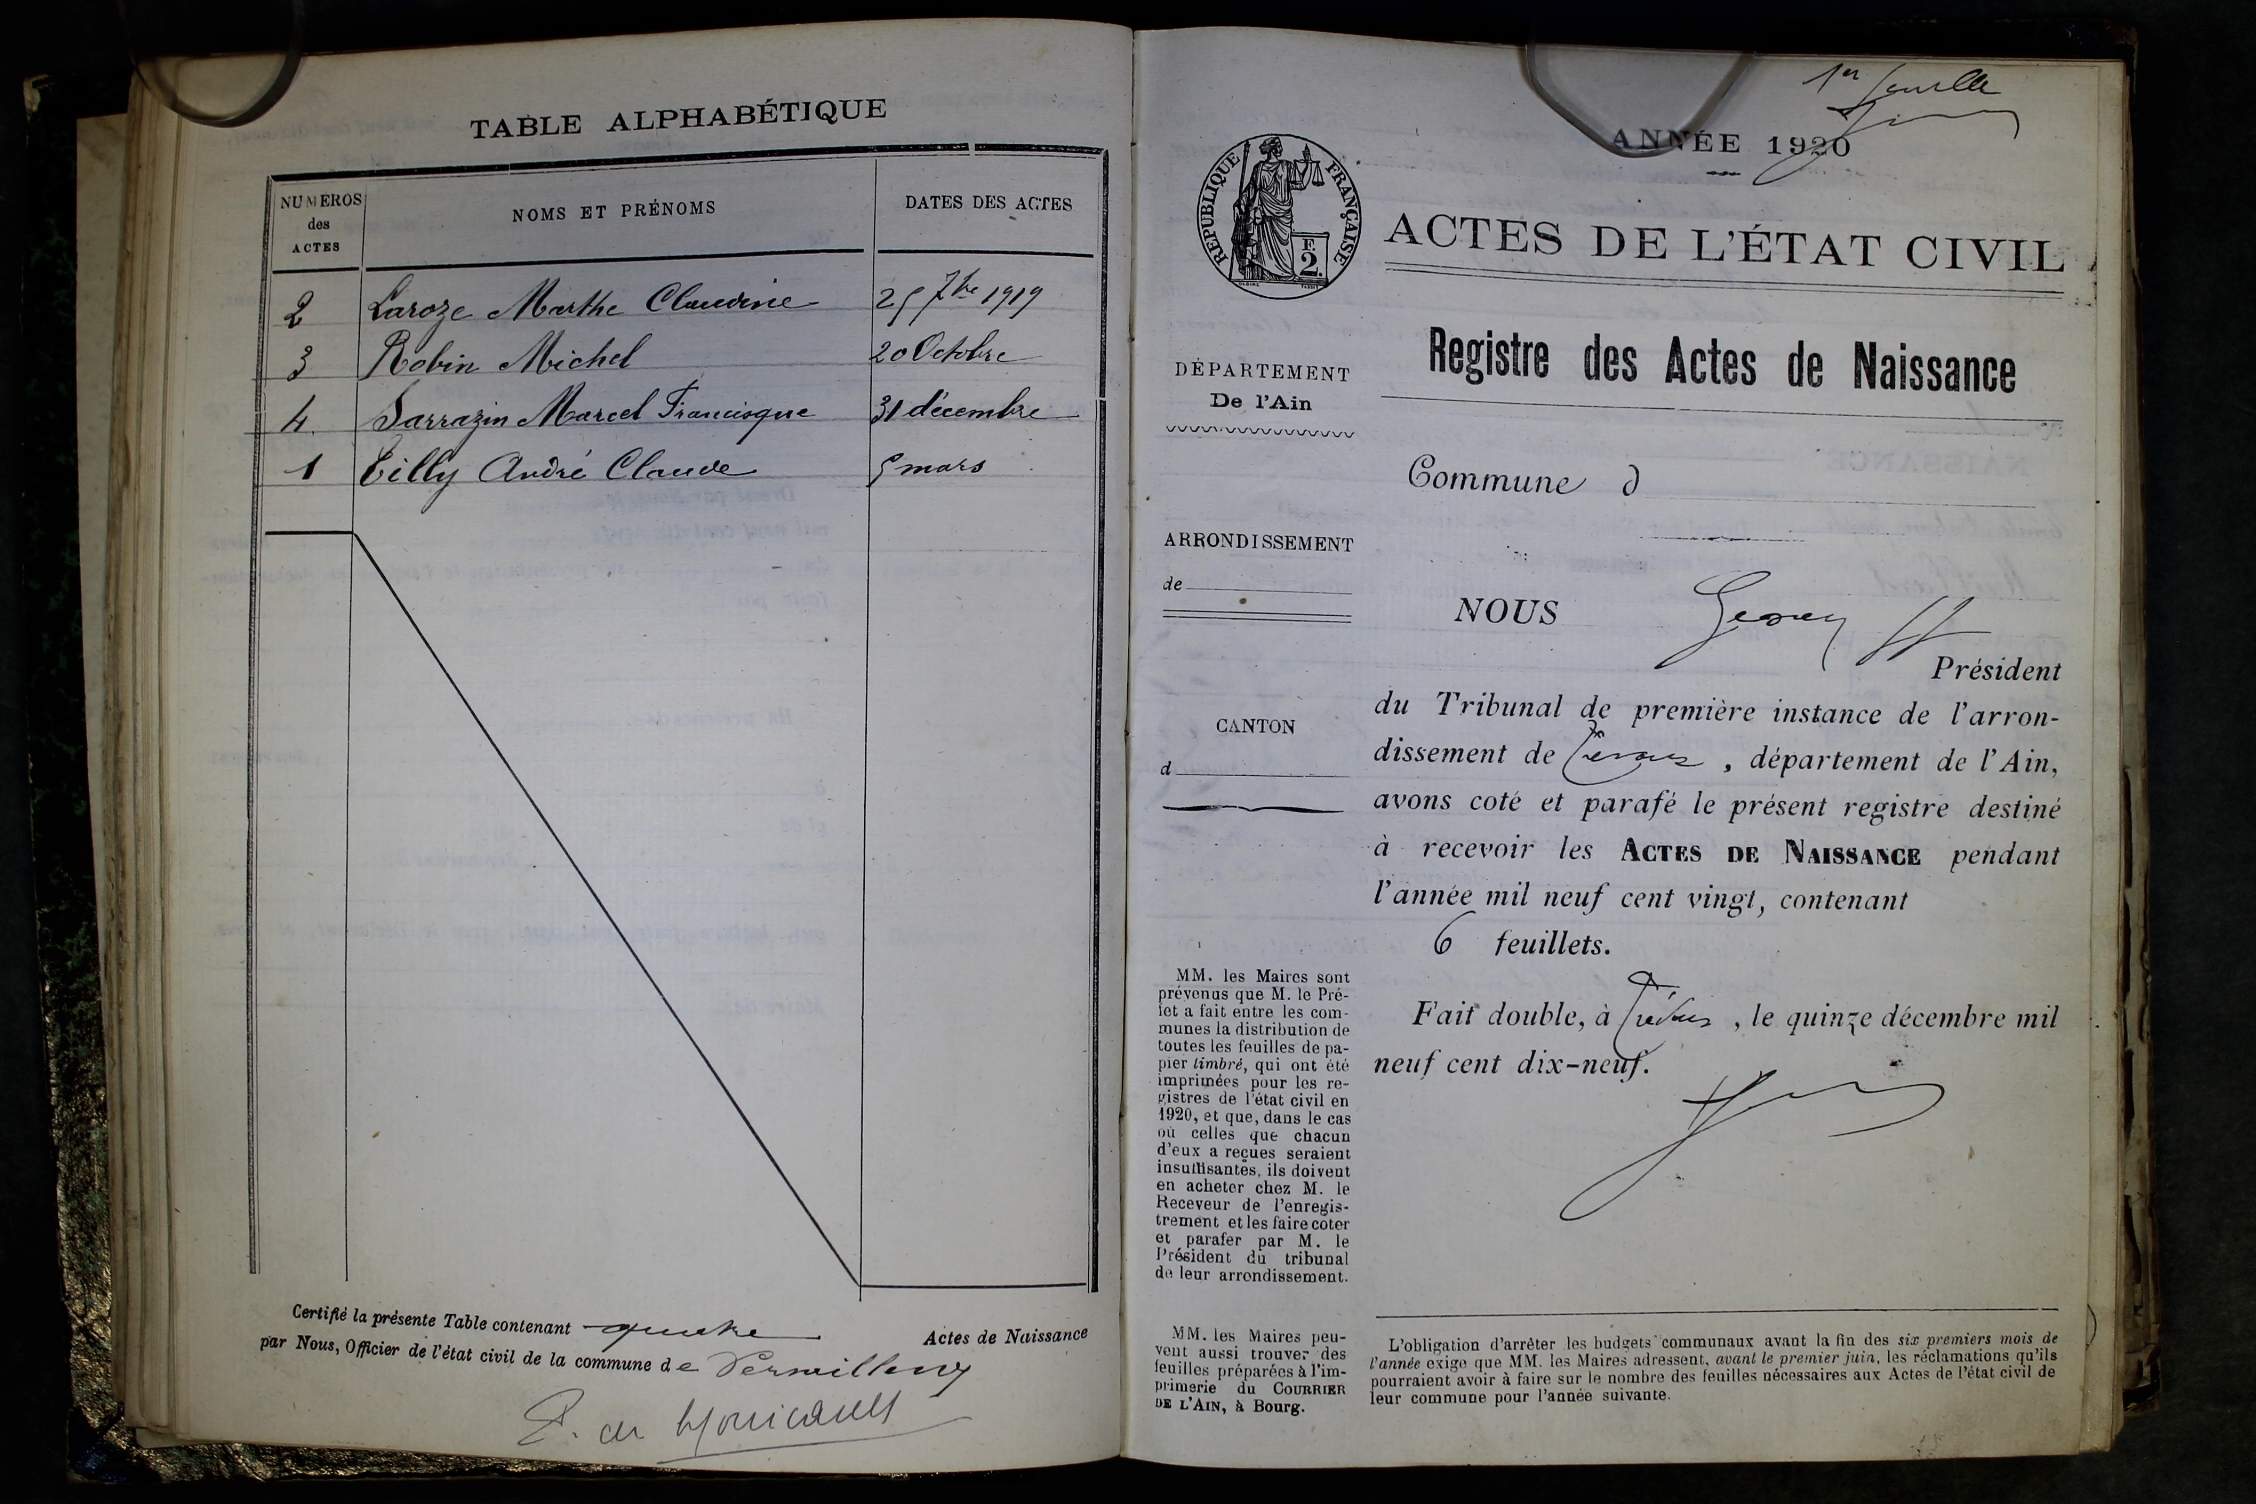 TABLE ALPHABÉTIQUE
NUMÉROS
des
ACTES
NOMS ET PRÉNOMS
DATES DES ACTES
2 Laroze Marthe Claudine 25 7bre 1919
3 Robin Michel 20 Octobre
4 Sarrazin Marcel Francisque 31 décembre
1 Tilly André Claude 5 mars
Certifié la présente Table contenant quatre Actes de Naissance
par Nous, Officier de l'état civil de la commune de
1er feuille
ANNÉE 1920
RÉPUBLIQUE FRANÇAISE
F.
2.
ACTES DE L'ÉTAT CIVIL
Registre des Actes de Naissance
DÉPARTEMENT
De l'Ain
Commune d
ARRONDISSEMENT
de
NOUS
Président
du Tribunal de première instance de l'arron-
dissement de Trévoux, département de l'Ain,
avons coté et parafé le présent registre destiné
à recevoir les ACTES DE NAISSANCE pendant
l'année mil neuf cent vingt, contenant
6 feuillets.
Fait double, à Trévoux, le quinze décembre mil
neuf cent dix-neuf.
CANTON
d
MM. les Maires sont
prévenus que M. le Pré-
fet a fait entre les com-
munes la distribution de
toutes les feuilles de pa-
pier timbré, qui ont été
imprimées pour les re-
gistres de l'état civil en
1920, et que, dans le cas
où celles que chacun
d'eux a reçues seraient
insuffisantes, ils doivent
en acheter chez M. le
Receveur de l'enregis-
trement et les faire coter
et parafer par M. le
Président du tribunal
de leur arrondissement.
MM. les Maires peu-
vent aussi trouver des
feuilles préparées à l'im-
primerie du COURRIER
DE L'AIN, à Bourg.
L'obligation d'arrêter les budgets communaux avant la fin des six premiers mois de
l'année exige que MM. les Maires adressent, avant le premier juin, les réclamations qu'ils
pourraient avoir à faire sur le nombre des feuilles nécessaires aux Actes de l'état civil de
leur commune pour l'année suivante.